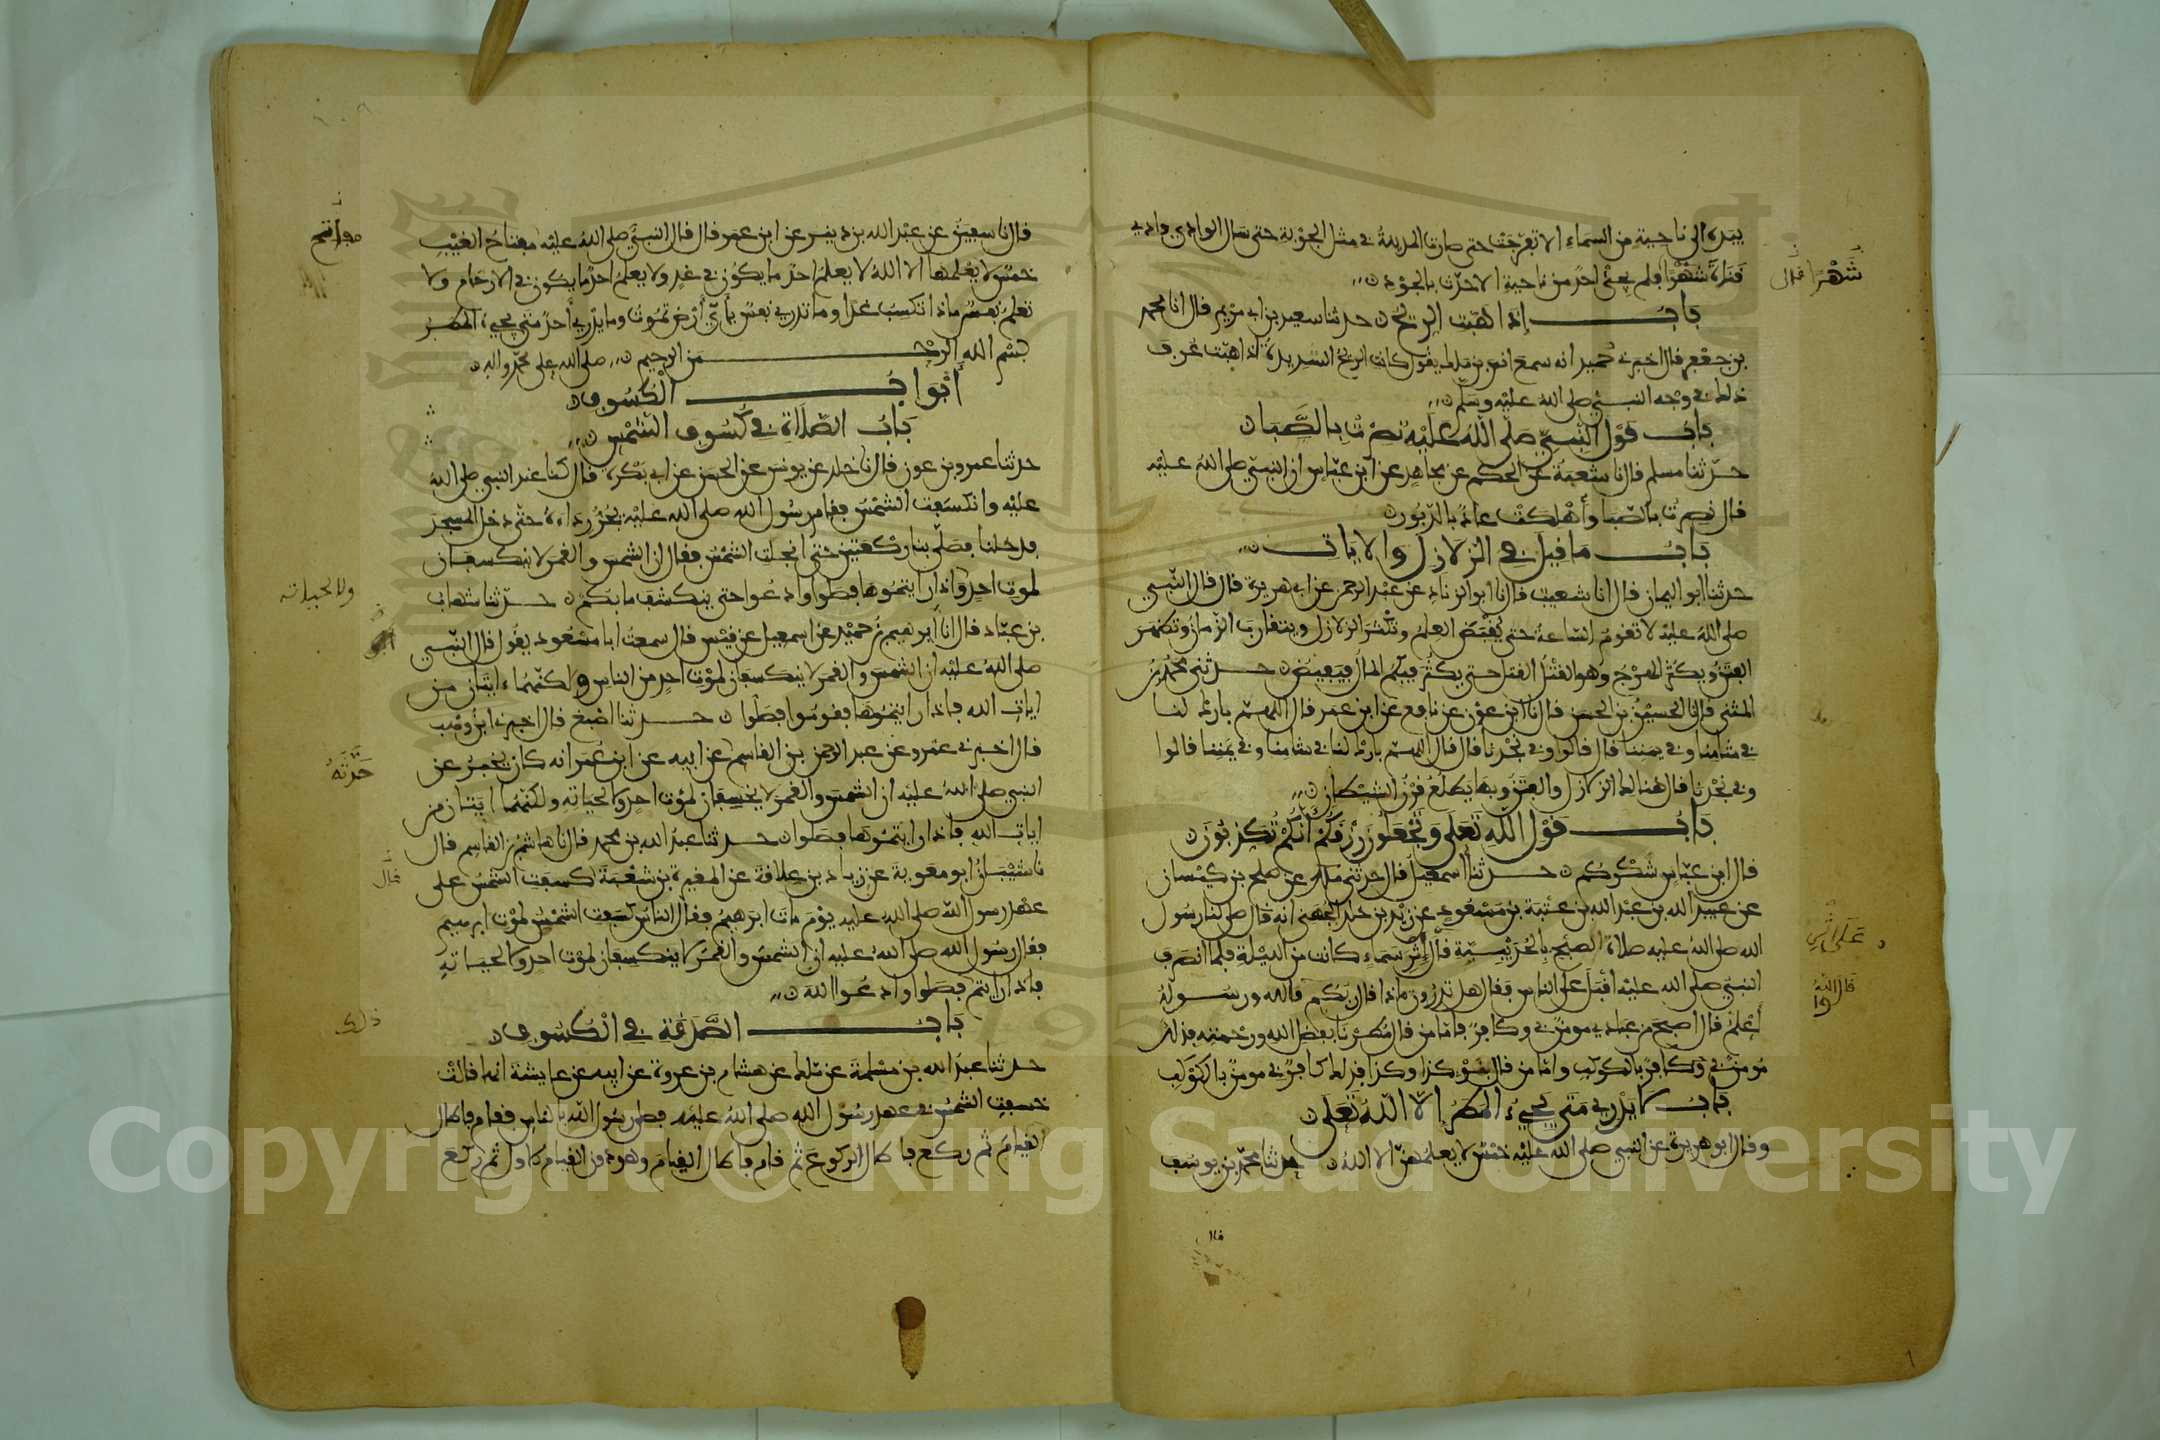 بيده الى ناحية من السماء الا تفرجت حتى صارت المدينة في مثل الجوبة حتى سال الوادي وادي
قناة شهرا فلم يجئ احد من ناحية الا حدث بالجود
باب اذا هبت الريح حدثنا سعيد بن ابي مريم قال انا محمد
بن جعفر قال اخبرني حميد انه سمع انس بن ملك يقول كانت الريح الشديدة اذا هبت عرف
ذلك في وجه النبي صلى الله عليه وسلم
باب قول النبي صلى الله عليه نصرت بالصبا
حدثنا مسلم قال نا شعبة عن الحكم عن مجاهد عن ابن عباس ان النبي صلى الله عليه
قال نصرت بالصبا وأهلكت عاد بالدبور
باب ما قيل في الزلازل والايات
حدثنا ابو اليمان قال انا شعيب قال نا أبو الزناد عن عبد الرحمن عن ابي هريرة قال قال النبي
صلى الله عليه لا تقوم الساعة حتى يقبض العلم وتكثر الزلازل ويتقارب الزمان وتظهر
الفتن ويكثر الهرج وهو القتل القتل حتى يكثر فيكم المال فيفيض حدثني محمد بن
المثنى قال نا الحسين بن الحسن قال نا ابن عون عن نافع عن ابن عمر قال اللهم بارك لنا
في شامنا وفي يمننا قال قالوا وفي نجدنا قال قال اللهم بارك لنا في شامنا وفي يمننا قالوا
وفي نجدنا قال هنالك الزلازل والفتن وبها يطلع قرن الشيطان
باب قول الله تعلى وتجعلون رزقكم أنكم تكذبون
قال ابن عباس شكركم حدثنا اسمعيل قال حدثني ملك عن صلح بن كيسان
عن عبيد الله بن عبد الله بن عتبة بن مسعود عن زيد بن خلد الجهني انه قال صلى لنا رسول
الله صلى الله عليه صلاة الصبح بالحديبية في إثر سماء كانت من الليلة فلما انصرف
النبي صلى الله عليه أقبل على الناس فقال هل تدرون ماذا قال ربكم قالله ورسوله
أعلم قال أصبح من عبادي مومن بي وكافر فاما من قال مطرنا بفضل الله ورحمته فذلك
مومن بي وكافر بالكوكب واما من قال بنوء كذا وكذا فذلك كافر بي مومن بالكوكب
باب لا يدري متى يجيء المطر إلا الله تعلى
وقال ابو هريرة عن النبي صلى الله عليه خمس لا يعلمهن الا الله حدثنا محمد بن يوسف
شهرا
قال
على اثر
قال الله
قال نا سفين عن عبد الله بن دينر عن ابن عمر قال قال النبي صلى الله عليه مفتاح الغيب
خمس لا يعلمها الا الله لا يعلم احد ما يكون في غد ولا يعلم احد ما يكون في الارحام ولا
تعلم نفس ماذا تكسب غدا وما تدري نفس بأي أرض تموت وما يدري أحد متى يجيء المطر
بسم الله الرحمن الرحيم صلى الله على محمد واله
أبواب الكسوف
باب الصلاة في كسوف الشمس
حدثنا عمرو بن عون قال نا خلد عن يونس عن الحسن عن ابي بكرة قال كنا عند النبي صلى الله
عليه وانكسفت الشمس فقام رسول الله صلى الله عليه يجر رداءه حتى دخل المسجد
فدخلنا فصلى بنا ركعتين حتى انجلت الشمس فقال ان الشمس والقمر لا ينكسفان
لموت احد واذا رايتموها فصلوا وادعوا حتى ينكشف ما بكم حدثنا شهاب
بن عباد قال انا ابرهيم بن حميد عن اسمعيل عن قيس قال سمعت ابا مسعود يقول قال النبي
صلى الله عليه ان الشمس والقمر لا ينكسفان لموت احد من الناس ولكنهماء ايتان من
ايات الله فاذا رايتموها فقوموا فصلوا حدثنا اصبغ قال اخبرني ابن وهب
قال اخبرني عمرو عن عبد الرحمن بن القاسم عن ابيه عن ابن عمر انه كان يخبر عن
النبي صلى الله عليه ان الشمس والقمر لا يخسفان لموت احد ولا لحياته ولكنهما ايتان من
ايات الله فاذا رايتموها فصلوا حدثنا عبد الله بن محمد قال نا هاشم بن القاسم قال
نا شيبان ابو معوية عن زياد بن علاقة عن المغيرة بن شعبة كسفت الشمس على
عهد رسول الله صلى الله عليه يوم مات ابرهيم فقال الناس كسفت الشمس لموت ابرهيم
فقال رسول الله صلى الله عليه ان الشمس والقمر لا ينكسفان لموت احد ولا لحياته
فاذا رايتم فصلوا وادعوا الله
باب الصدقة في الكسوف
حدثنا عبد الله بن مسلمة عن ملك عن هشام بن عروة عن ابيه عن عايشة انها قالت
خسفت الشمس في عهد رسول الله صلى الله عليه فصلى رسول الله بالناس فقام فاطال
القيام ثم ركع فاطال الركوع ثم قام فاطال القيام وهو دون القيام الاول ثم ركع
مفاتح
ولا لحياته
حدثه
قال
ذلك
قال